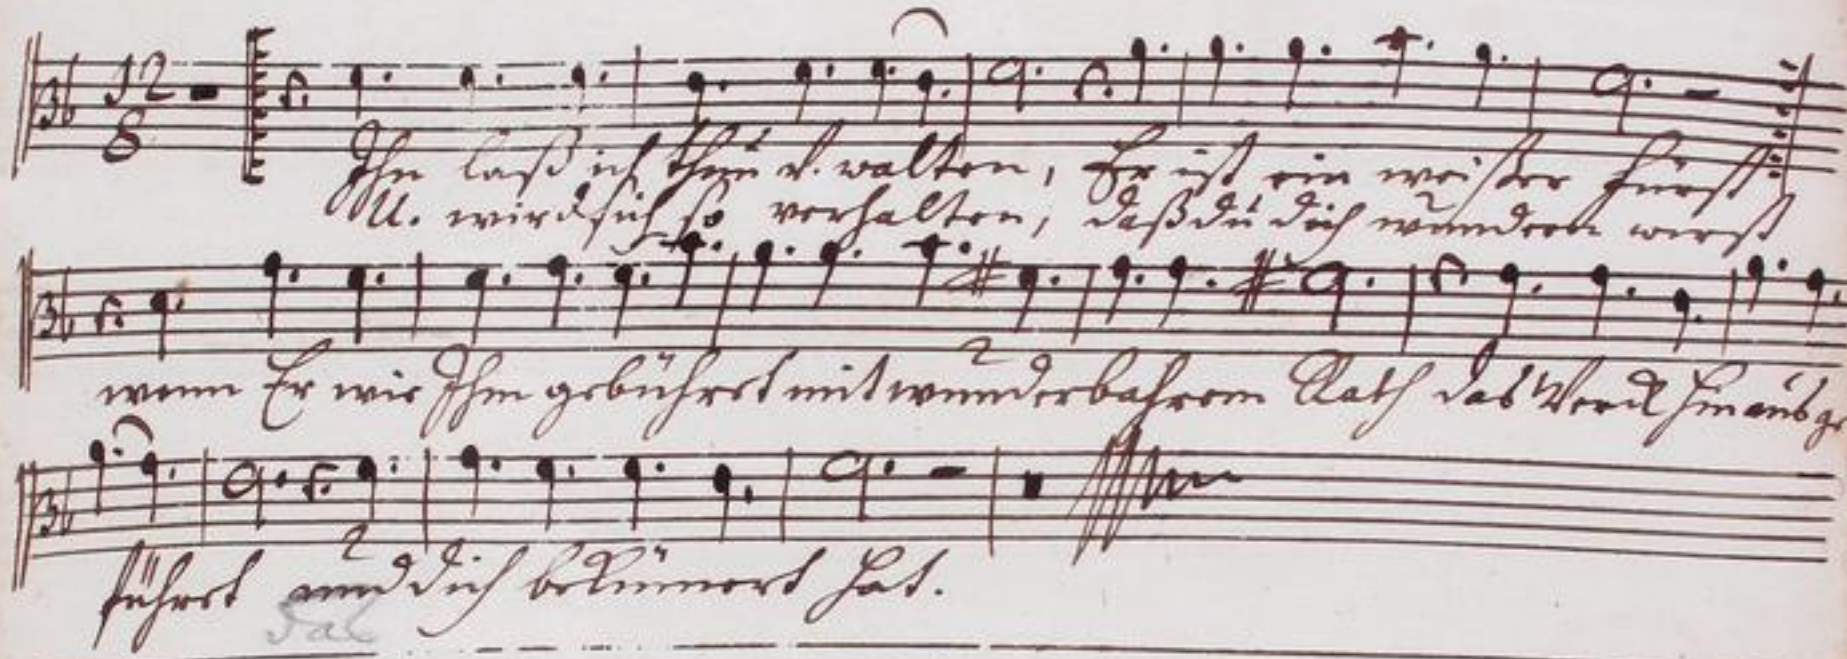 12
8
Ihn laß ich thun u. walten, Er ist ein weiser Fürst
U. wird sich so verhalten, daß du dich wundern wirst
wenn Er wie Ihm gebühret mit wunderbahrem Rath das Werck hinausge
führet und dich bekümert hat.
das